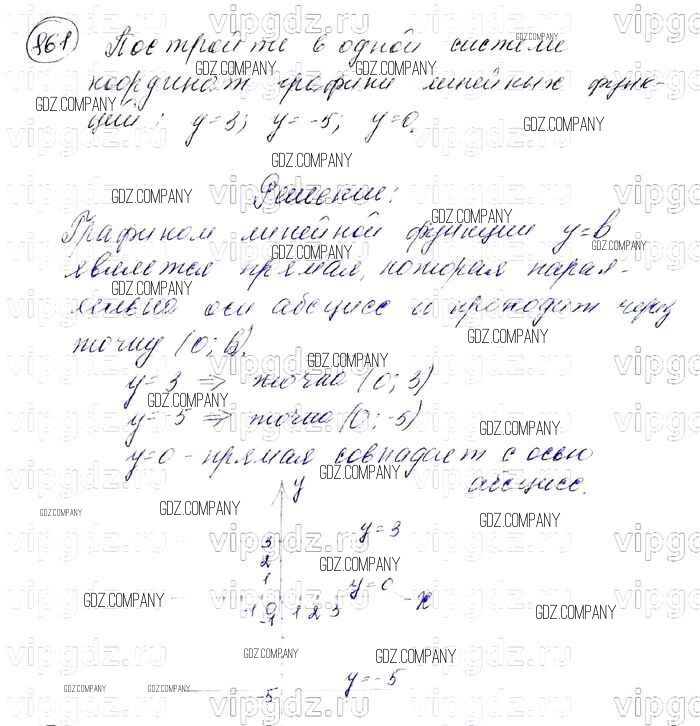 861 Постройте в одной системе
координат графики линейных функ-
ций: y=3; y=-5; y=0.
Решение:
Графиком линейной функции y=b
является прямая, которая парал-
лельна оси абсцисс и проходит через
точку (0; b).
y=3 => точка (0; 3)
y=-5 => точка (0; -5)
y=0 - прямая совпадает с осью
абсцисс.
y
3 y=3
2
1 y=0
-1 0 1 2 3 x
-1
-5 y=-5
GDZ.COMPANY
vipgdz.ru